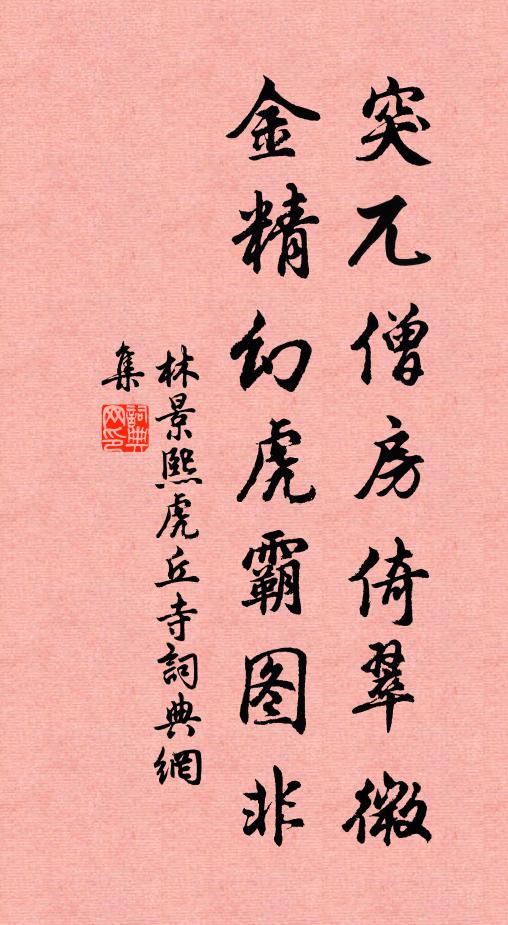 突兀僧房倚翠微
金精幻虎霸图非
林景熙虎丘寺詞典網
集
詞典
网印